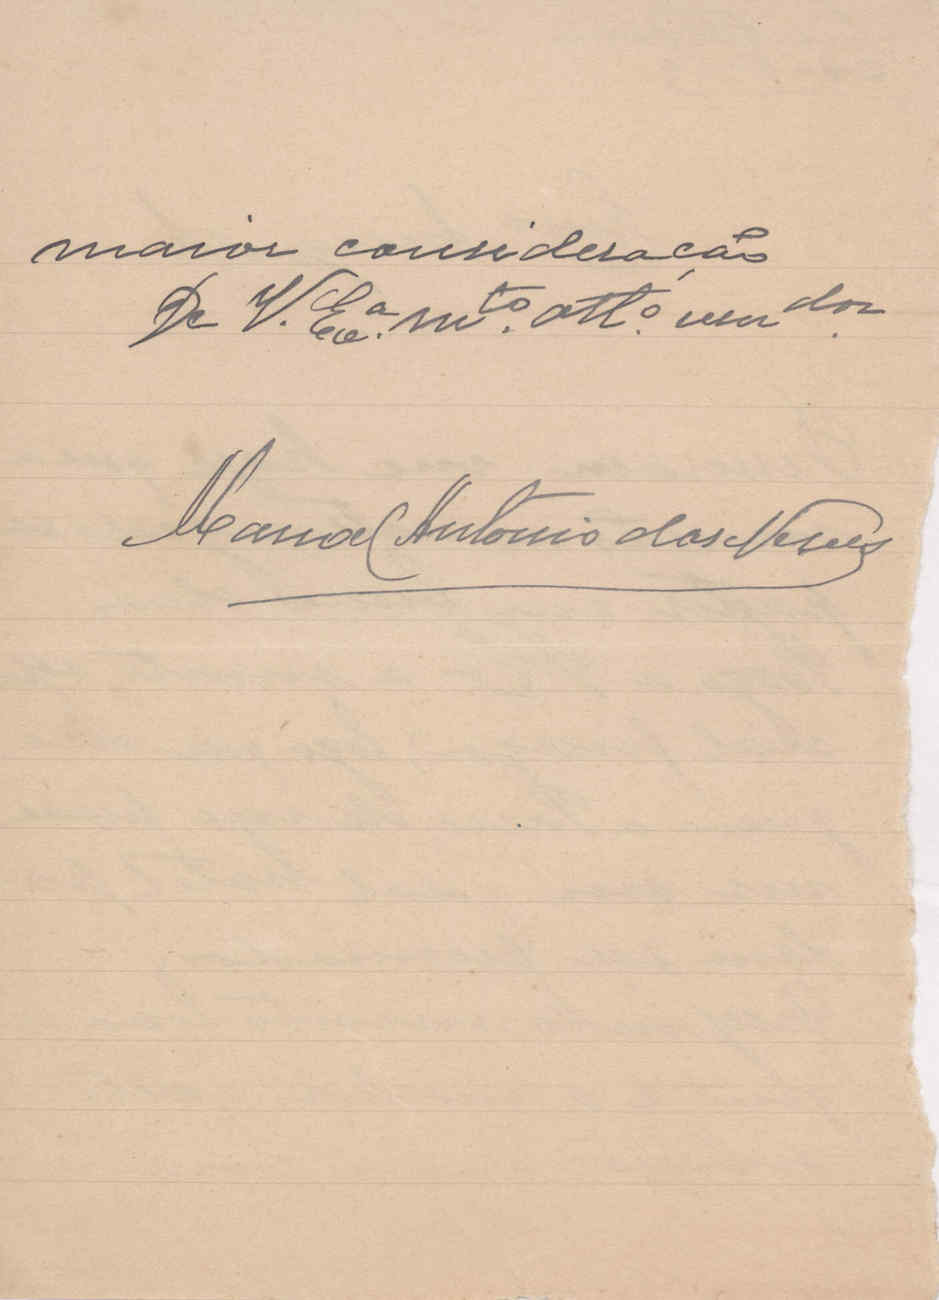 maior consideração
De V. Exca. mto. atto. vendor.
Manoel Antonio das Neves